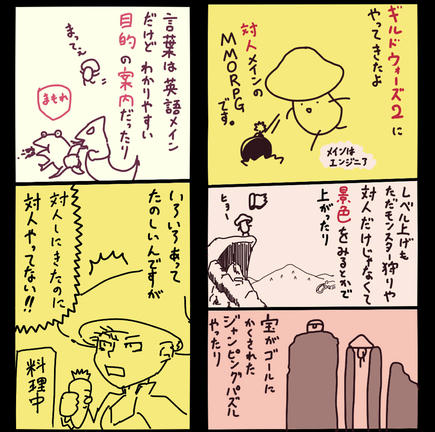 ギルドウォーズ2に
やってきたよ
対人メインの
MMORPG
です。
メインは
エンジニア
レベル上げも
ただモンスター狩りや
対人だけじゃなくて
景色をみるとかで
上がったり
ヒョー
宝がゴールに
かくされた
ジャンピングパズル
やったり
言葉は英語メイン
だけど わかりやすい
目的の案内だったり
まってぇ
まもれ
いろいろあって
たのしいんですが
対人しにきたのに
対人やってない!!
料理中